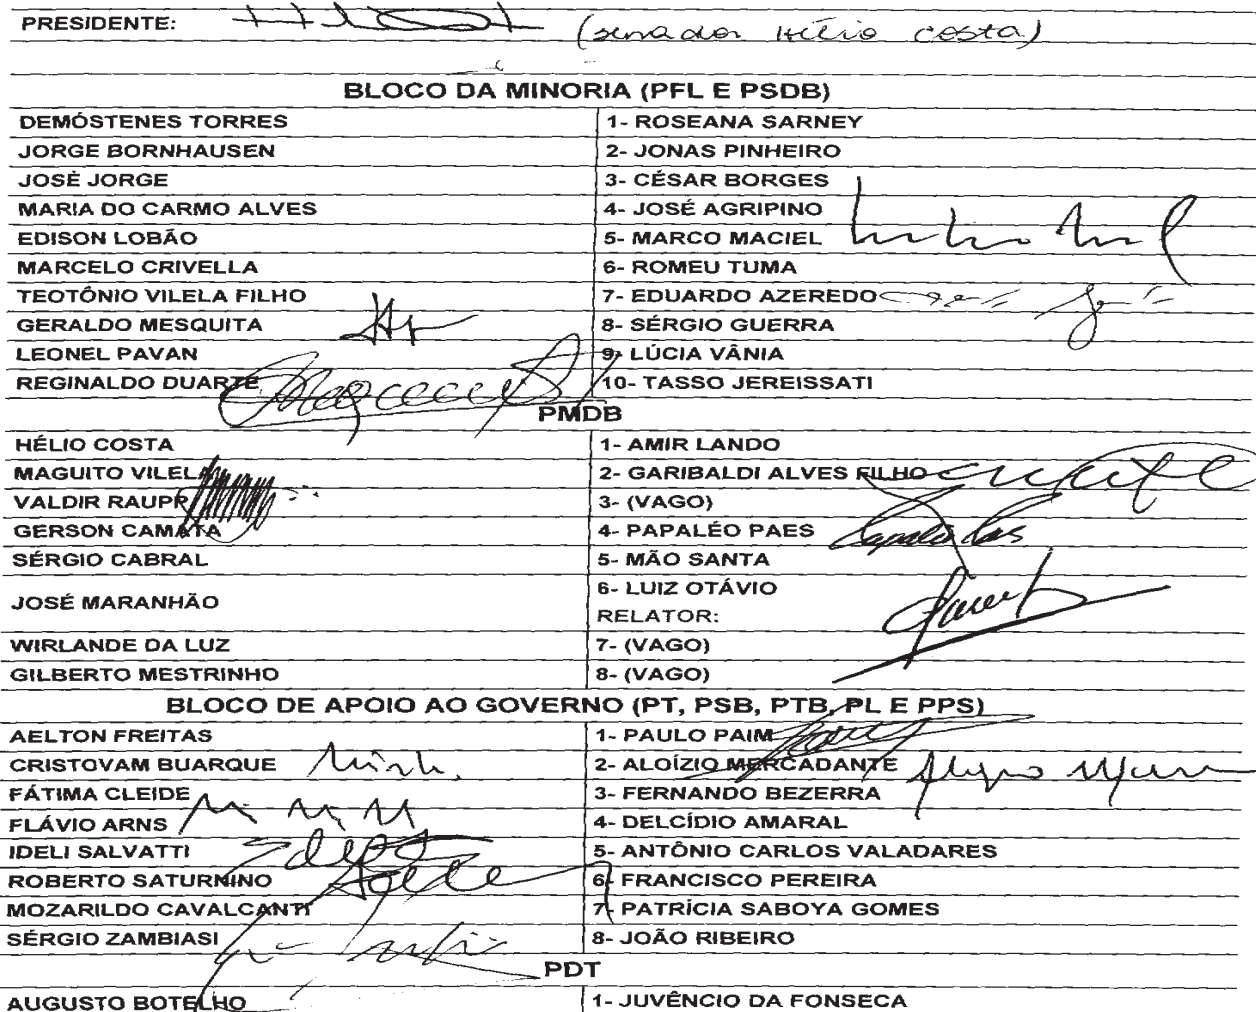 PRESIDENTE: (senador Hélio Costa)
BLOCO DA MINORIA (PFL E PSDB)
DEMÓSTENES TORRES 1- ROSEANA SARNEY
JORGE BORNHAUSEN 2- JONAS PINHEIRO
JOSÉ JORGE 3- CÉSAR BORGES
MARIA DO CARMO ALVES 4- JOSÉ AGRIPINO
EDISON LOBÃO 5- MARCO MACIEL
MARCELO CRIVELLA 6- ROMEU TUMA
TEOTÔNIO VILELA FILHO 7- EDUARDO AZEREDO
GERALDO MESQUITA 8- SÉRGIO GUERRA
LEONEL PAVAN 9- LÚCIA VÂNIA
REGINALDO DUARTE 10- TASSO JEREISSATI
PMDB
HÉLIO COSTA 1- AMIR LANDO
MAGUITO VILELA 2- GARIBALDI ALVES FILHO
VALDIR RAUPP 3- (VAGO)
GERSON CAMATA 4- PAPALÉO PAES
SÉRGIO CABRAL 5- MÃO SANTA
JOSÉ MARANHÃO 6- LUIZ OTÁVIO
RELATOR:
WIRLANDE DA LUZ 7- (VAGO)
GILBERTO MESTRINHO 8- (VAGO)
BLOCO DE APOIO AO GOVERNO (PT, PSB, PTB, PL E PPS)
AELTON FREITAS 1- PAULO PAIM
CRISTOVAM BUARQUE 2- ALOÍZIO MERCADANTE
FÁTIMA CLEIDE 3- FERNANDO BEZERRA
FLÁVIO ARNS 4- DELCÍDIO AMARAL
IDELI SALVATTI 5- ANTÔNIO CARLOS VALADARES
ROBERTO SATURNINO 6- FRANCISCO PEREIRA
MOZARILDO CAVALCANTI 7- PATRÍCIA SABOYA GOMES
SÉRGIO ZAMBIASI 8- JOÃO RIBEIRO
PDT
AUGUSTO BOTELHO 1- JUVÊNCIO DA FONSECA